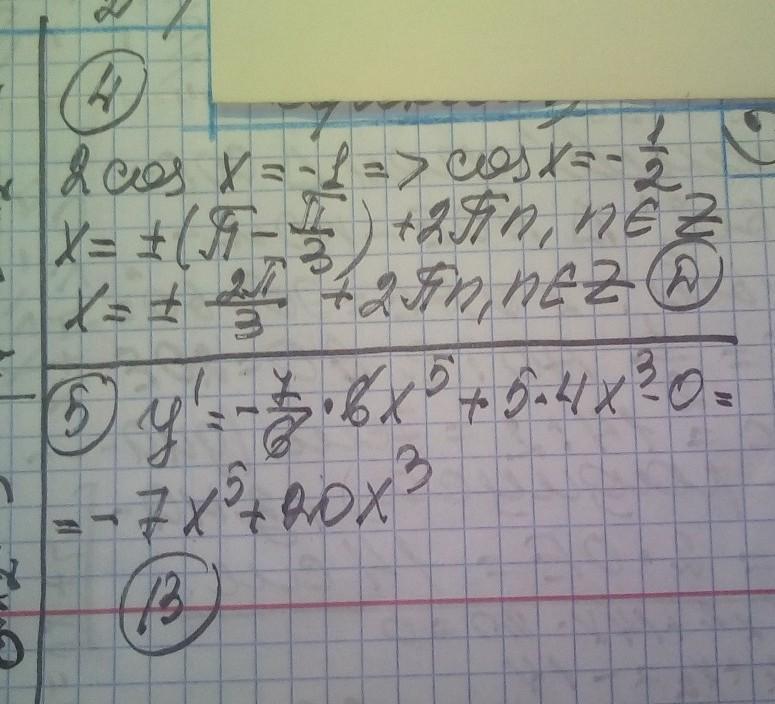 4
2 cos x = -1 => cos x = - 1/2
x = ± (π - π/3) + 2πn, n ∈ Z
x = ± 2π/3 + 2πn, n ∈ Z Д
5 y' = - 7/6 · 6x⁵ + 5·4x³ - 0 =
= - 7x⁵ + 20x³